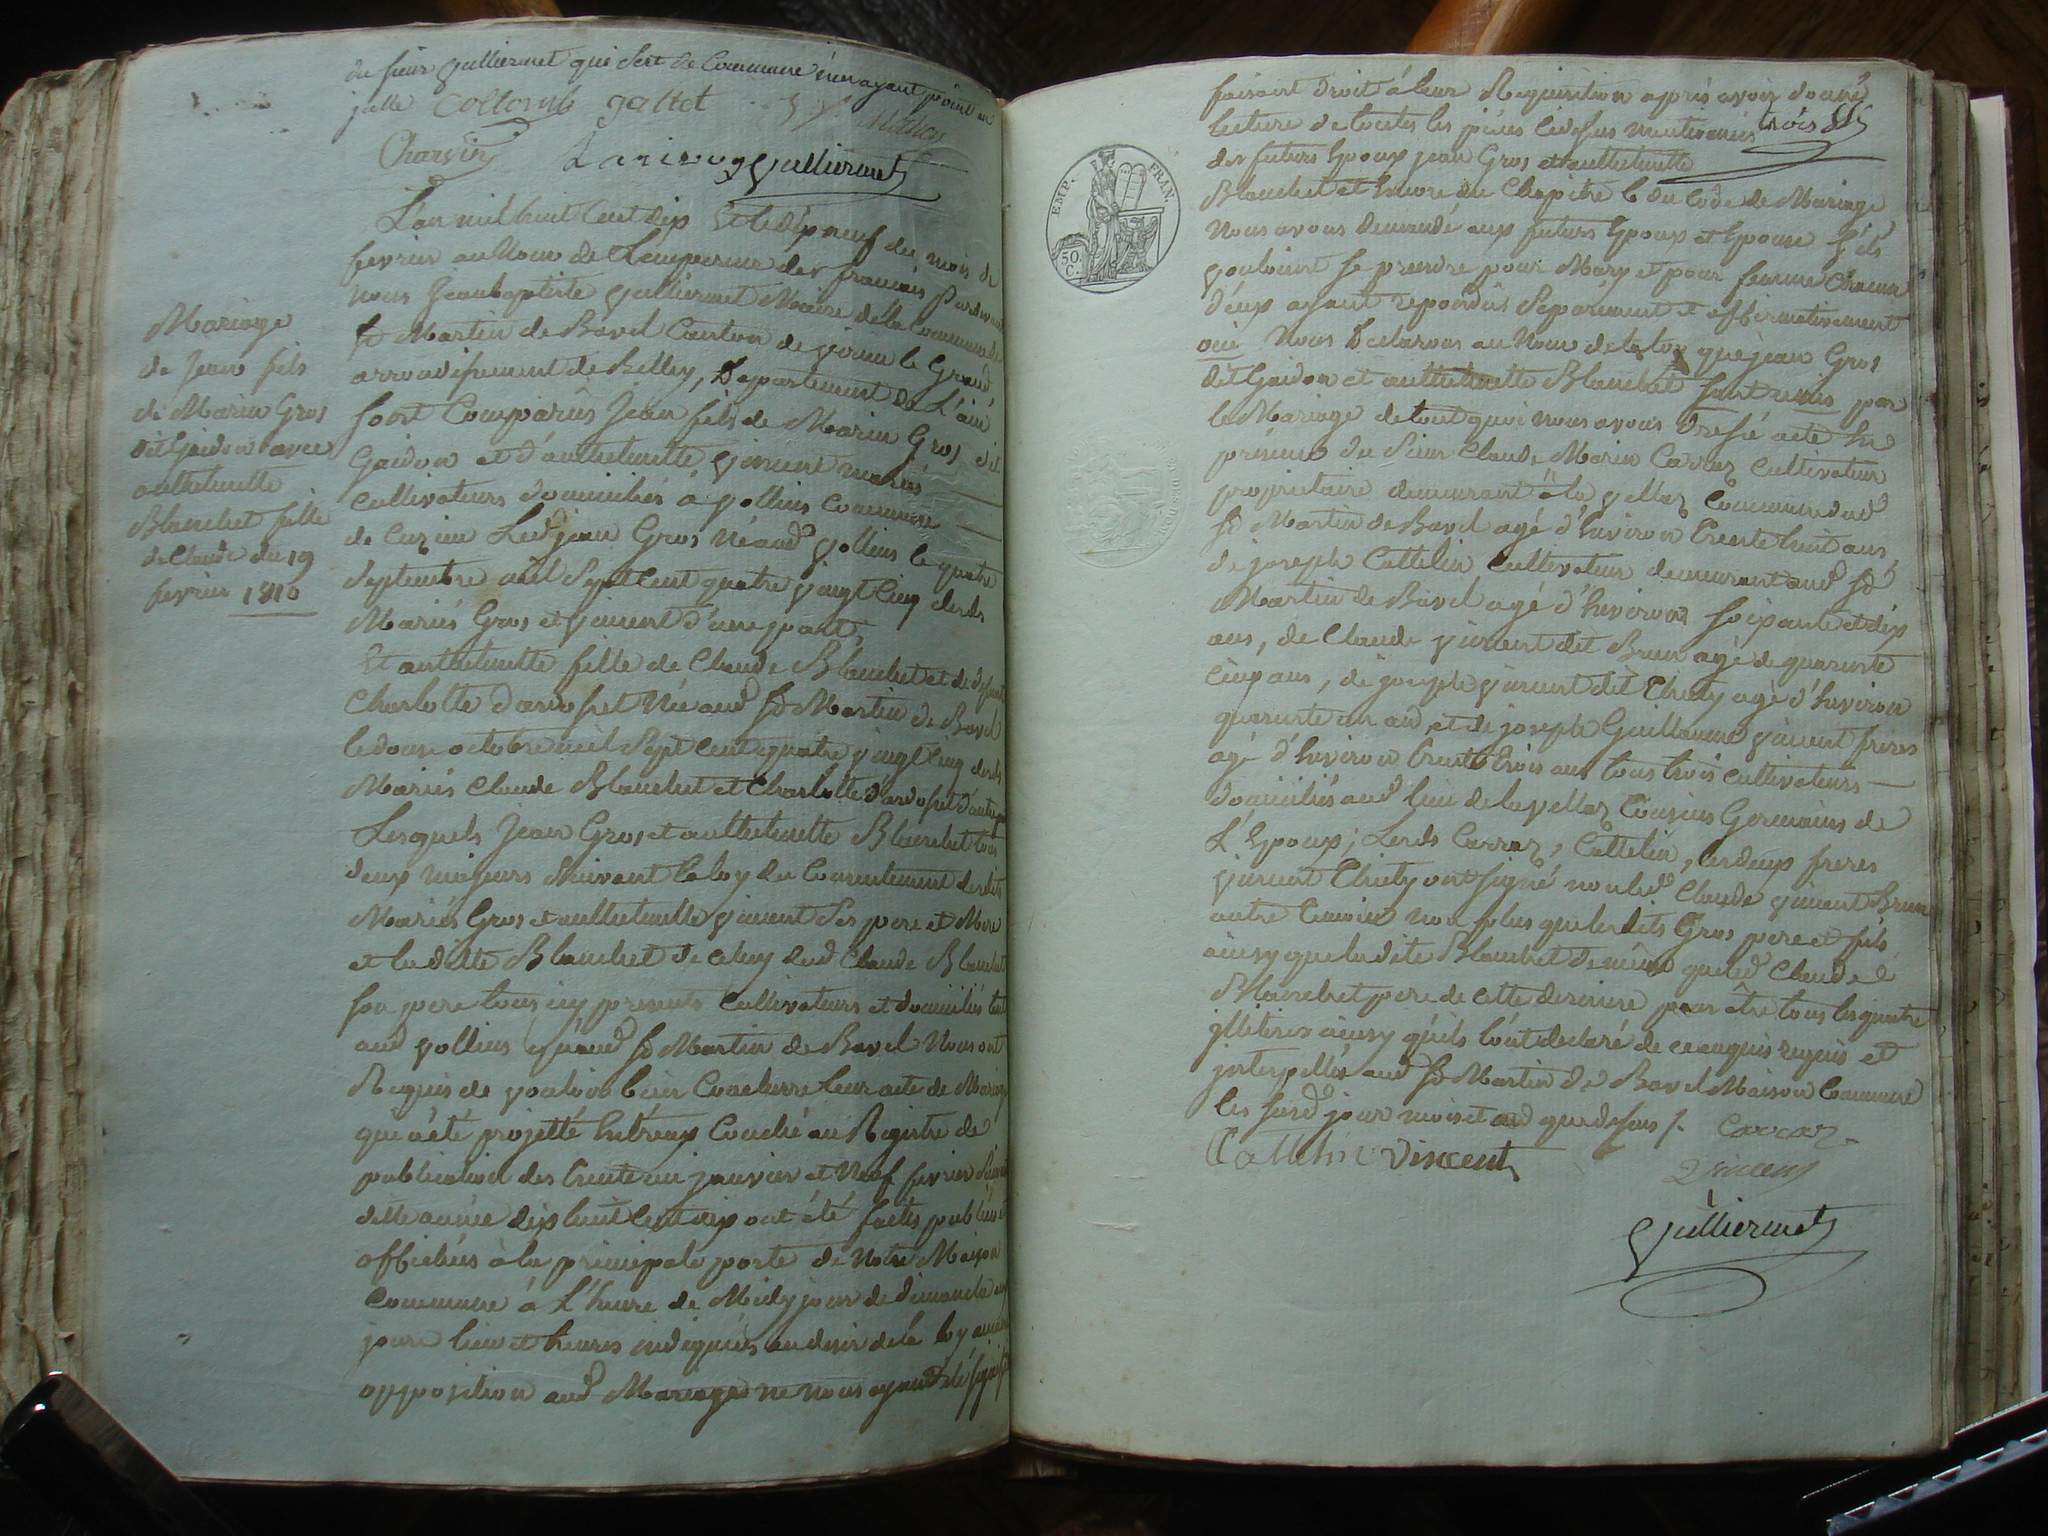 du sieur gulliermet qui sert de Commune n'en ayant point en
jcelle collomb gallet
Charvin gulliermet
L'an mil huit Cent dix Et le dix neuf du mois de
fevrier au Nom de L'empereur des francais Pardevant
nous Jeanbaptiste gulliermet Maire de la Commune de
St Martin de Bavel Canton de virieu le Grand
arrondissement de Belley, Departement de L'ain
sont Comparus Jean fils de Marin Gros dit
Gaidon et d'anthelmette vincent mariés
cultivateurs domiciliés à vollien Commune
de Cuzieu Led jean Gros Né aud vollien le quatre
Septembre mil Sept Cent quatre vingt Cinq desds
Mariés Gros et vincent d'une part,
Et anthelmette fille de Claude Blanchet et de defunte
Charlotte dardosset Née aud St Martin de Bavel
le douze octobre mil Sept Cent quatre vingt Cinq desds
Mariés Claude Blanchet et Charlotte dardosset d'autre part
Lesquels Jean Gros et anthelmette Blanchet tous
deux majeurs Suivant la loy du Consentement desdits
Mariés Gros et anthelmette vincent Ses pere et Mere
et la ditte Blanchet de celuy dud Claude Blanchet
son pere tous icy presents Cultivateurs et domiciliés tant
aud vollien qu'aud St Martin de Bavel Nous ont
Requis de vouloir bien Conclurre Leur acte de Mariage
qui a été projetté entreux Couché au Registre de
publication des trente un janvier et Neuf fevrier
ditte année dix huit Cent dix ont été faites publiées et
affichées à la principale porte de Notre Maison
Commune à L'heure de Midy jour de dimanche aux
jours lieu et heures indiqués au desir de la loy aucune
opposition aud Mariage ne nous ayant été signifiée
Mariage
de Jean fils
de Marin Gros
dit Gaidon avec
anthelmette
Blanchet fille
de Claude du 19
fevrier 1810
EMP. FRAN.
50. C.
faisant droit à leur Requisition après avoir donné
lecture de toutes les pièces cidessus mentionnées
des futurs Epoux jean Gros et anthelmette
Blanchet et Encore du Chapitre 6 du Code de Mariage
Nous avons demandé aux futurs Epoux et Epouse S'ils
vouloient se prendre pour Mary et pour femme Chacun
d'eux ayant repondus Séparément et affirmativement
oui Nous Declarons au Nom de la loy que jean Gros
dit Gaidon et anthelmette Blanchet sont unis par
le Mariage de tout quoi nous avons dressé acte En
présence du Sieur Claude Marin Carraz cultivateur
proprietaire demeurant à la vellaz Commune dud
St Martin de Bavel agé d'Environ trente huit ans,
de joseph Cattelin Cultivateur demeurant aud St
Martin de Bavel agé d'Environ soixante et dix
ans, de Claude vincent dit Brun agé de quarante
Cinq ans, de joseph vincent dit Thuty agé d'Environ
quarante un ans et de joseph Guillaume vincent frères
agé d'Environ trente trois ans tous trois cultivateurs
domiciliés aud lieu de la vellaz Cousins Germains de
L'Epoux; Lesds Carraz, Cattelin, les deux freres
vincent Thuty ont signé non led Claude vincent Brun
autre temoin non plus que lesdits Gros pere et fils
ainsy que la dite Blanchet de même que led Claude
Blanchet pere de cette derniere pour être tous les quatre
jlliterés ainsy qu'ils l'ont declaré de ce enquis requis et
jnterpellés aud St Martin de Bavel Maison Commune
les susd jour mois et an que dessus /. Carraz
Cattelin vincent
vincent
gulliermet